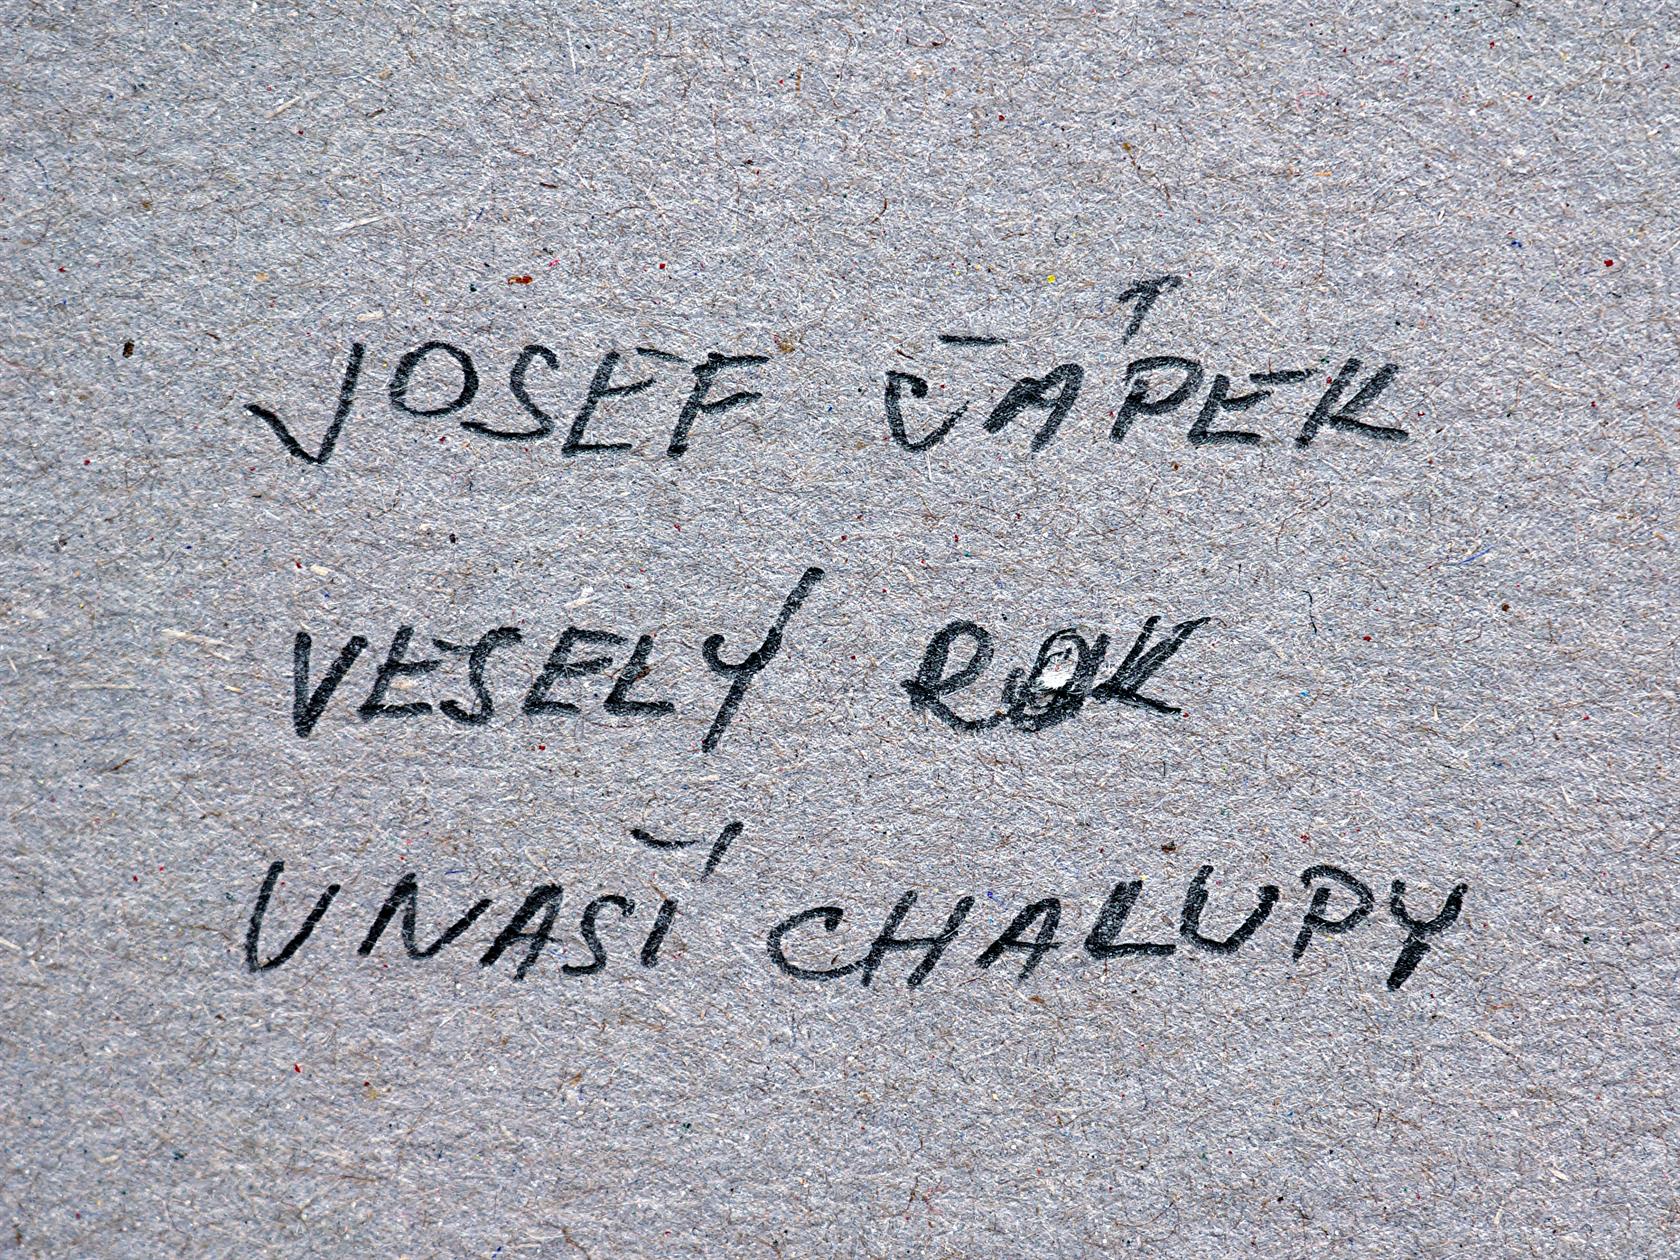 JOSEF ČAPEK
VESELY ROK
V NAŠÍ CHALUPY